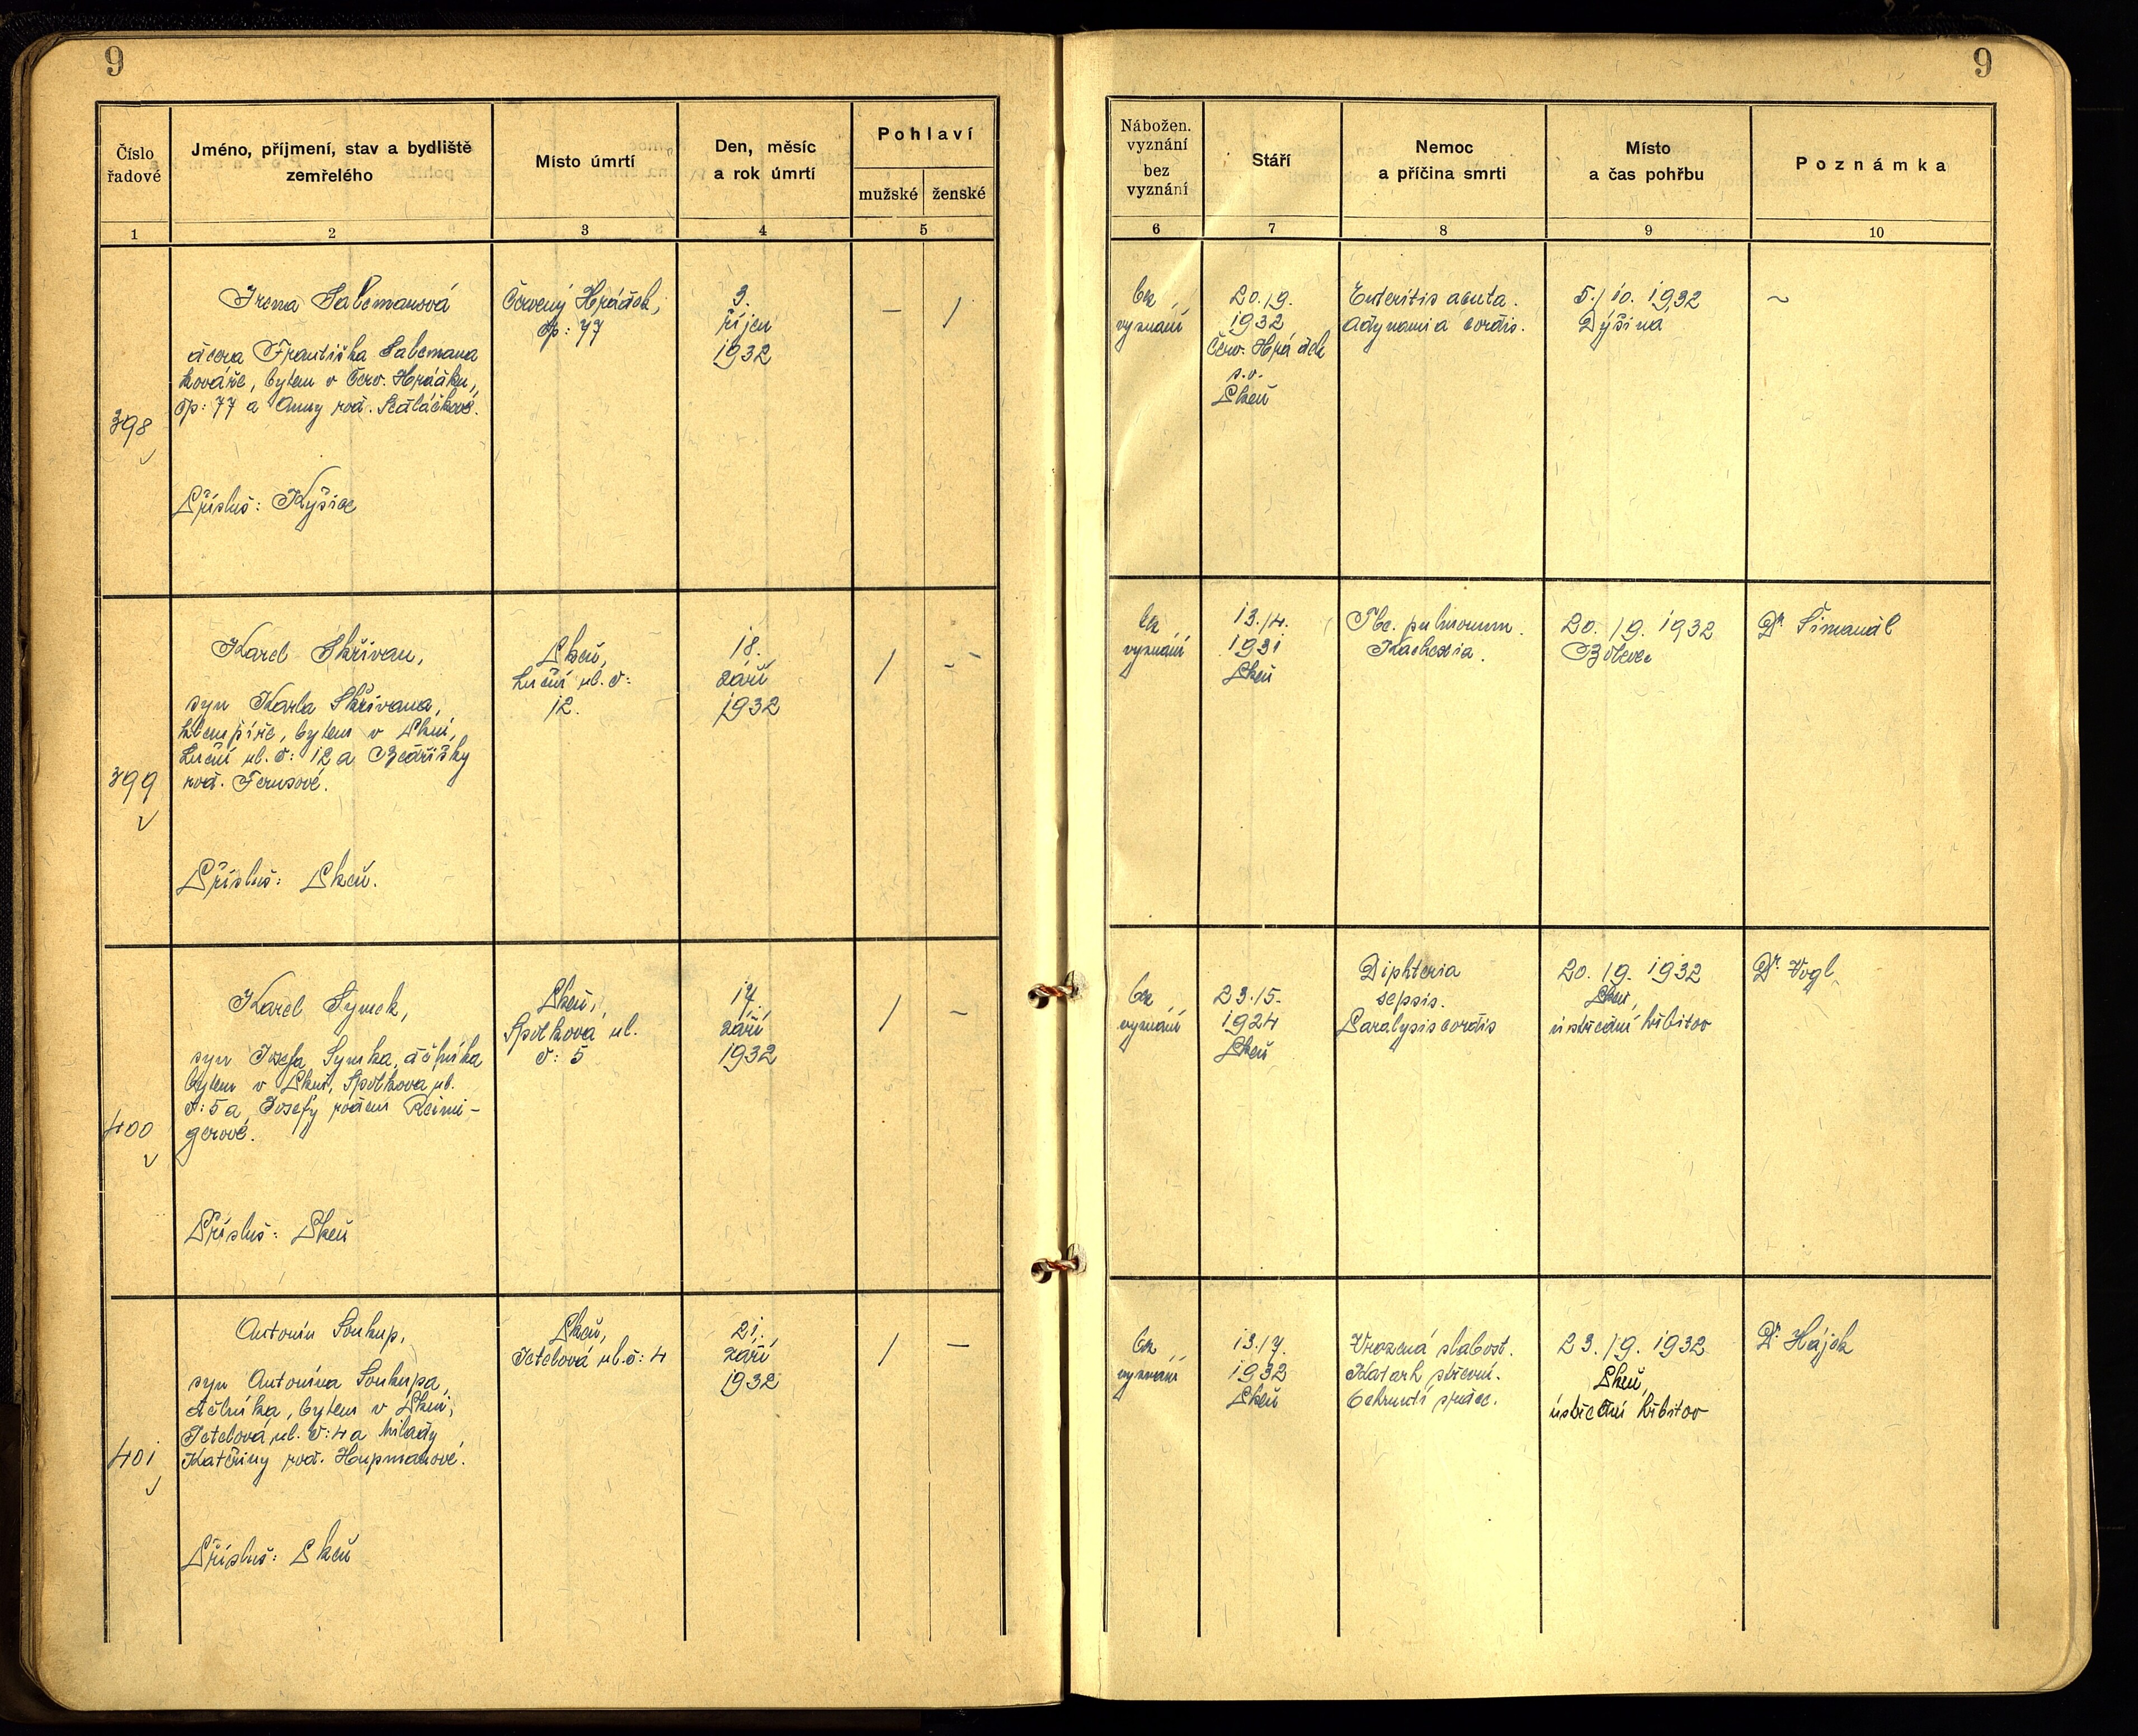 9
9
Číslo řadové
Jméno, příjmení, stav a bydliště zemřelého
Místo úmrtí
Den, měsíc a rok úmrtí
Pohlaví
mužské
ženské
Nábožen. vyznání
bez vyznání
Stáří
Nemoc a příčina smrti
Místo a čas pohřbu
Poznámka
1
2
3
4
5
6
7
8
9
10
398
Irena
dcera Františka
kováře, bytem v Červ. Hrádku,
čp: 77 a Anny roz. Sedláčkové.
Přísluš: Kyšice
Červený Hrádek,
čp: 77
3.
říjen
1932
–
/
bez
vyznání
20./9.
1932
Červ. Hrádek
s.o.
Plzeň
Enteritis acuta.
Adynamia cordis.
5./10. 1932
Dýšina
~
399
Karel Skřivan,
syn Karla Skřivana,
klempíře, bytem v Plzni,
Luční ul. č: 12 a Bedřišky
roz.
Přísluš: Plzeň.
Plzeň,
Luční ul. č:
12.
18.
září
1932
/
–
bez
vyznání
13./4.
1931
Plzeň
Tbc. pulmonum.
Kachexia.
20./9. 1932
Bolevec
Dr
400
Karel Symek,
syn Josefa Symka, dělníka
bytem v Plzni, ul.
č: 5 a Josefy rozené
gerové.
Přísluš: Plzeň
Plzeň,
ul.
č: 5
17.
září
1932
/
–
bez
vyznání
23./5.
1924
Plzeň
Diphteria
sepsis.
Paralysis cordis
20./9. 1932
Plzeň,
ústřední hřbitov
Dr Vogl
401
Antonín Soukup,
syn Antonína Soukupa,
dělníka, bytem v Plzni,
Jetelová ul. č: 4 a
Kateřiny roz. Hupmanové.
Přísluš: Plzeň
Plzeň,
Jetelová ul. č: 4
21.
září
1932
/
–
bez
vyznání
13./7.
1932
Plzeň
Vrozená slabost.
Katarh střevní.
Ochrnutí srdce.
23./9. 1932
Plzeň,
ústřední hřbitov
Dr Hájek